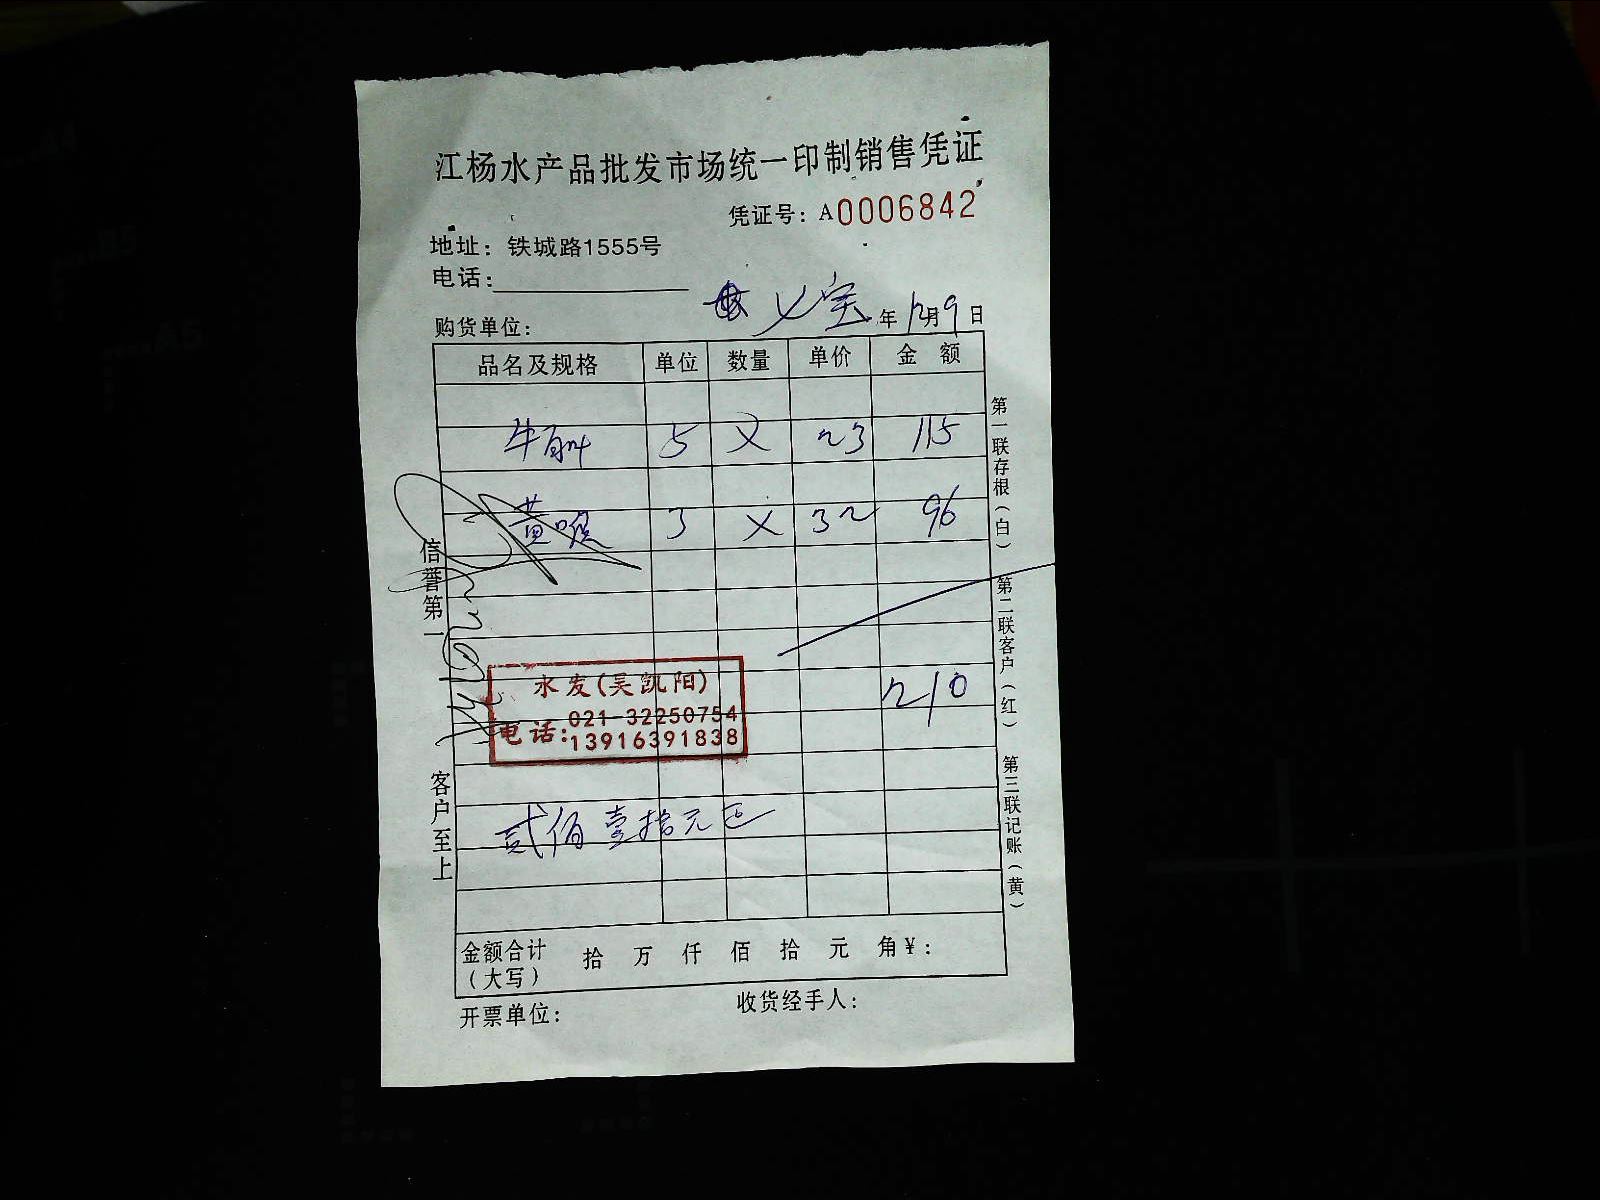 江杨水产品批发市场统一印制销售凭证
凭证号：A0006842
地址：铁城路1555号
电话：
购货单位： 年 12月9日
品名及规格 单位 数量 单价 金额
牛百叶 5 × 23 115
黄喉 3 × 32 96
210
水发(吴凯阳)
电话:021-32250754
13916391838
贰佰壹拾元正
金额合计（大写） 拾 万 仟 佰 拾 元 角￥：
开票单位： 收货经手人：
信誉第一 客户至上
第一联存根（白） 第二联客户（红） 第三联记账（黄）